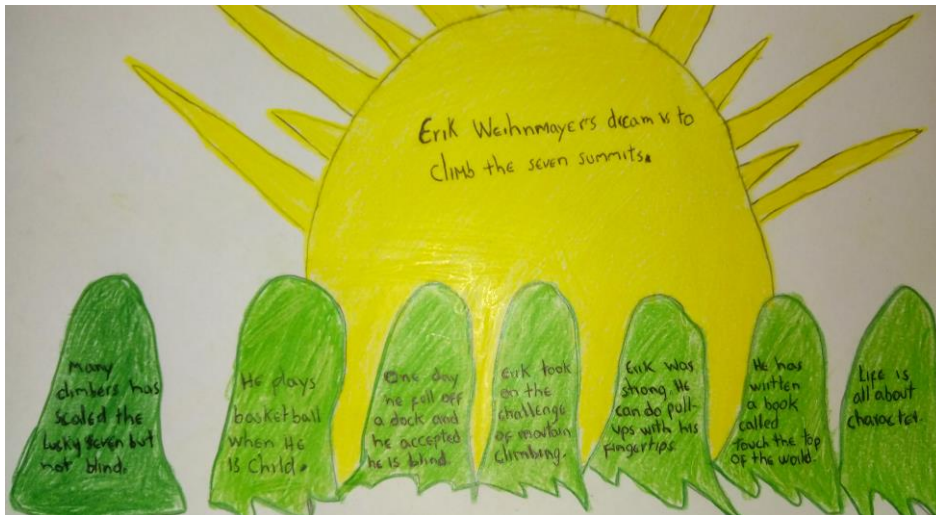 Erik Weihnmayer's dream is to
climb the seven summits.
Many
climbers has
scaled the
lucky seven but
not blind.
He plays
basketball
when He
is child.
One day
he fell off
a dock and
he accepted
he is blind.
Erik took
on the
challenge
of montain
climbing.
Erik was
strong. He
can do pull-
ups with his
fingertips.
He has
written
a book
called
Touch the Top
of the world.
Life is
all about
character.